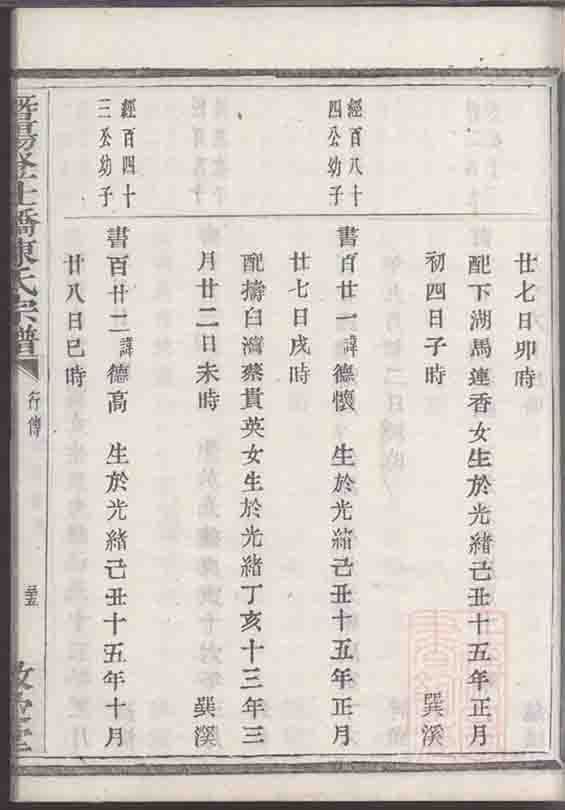 廿七日卯時
配下湖馬連香女生於光緒己丑十五年正月
初四日子時 巽溪
經百八十
四公幼子
書百廿一諱德懷 生於光緒己丑十五年正月
廿七日戌時
配擣臼灣蔡貴英女生於光緒丁亥十三年三
月廿二日未時 巽溪
經百四十
三公幼子
書百廿二諱德高 生於光緒己丑十五年十月
廿八日巳時
暨陽登仕橋陳氏宗譜
行傳